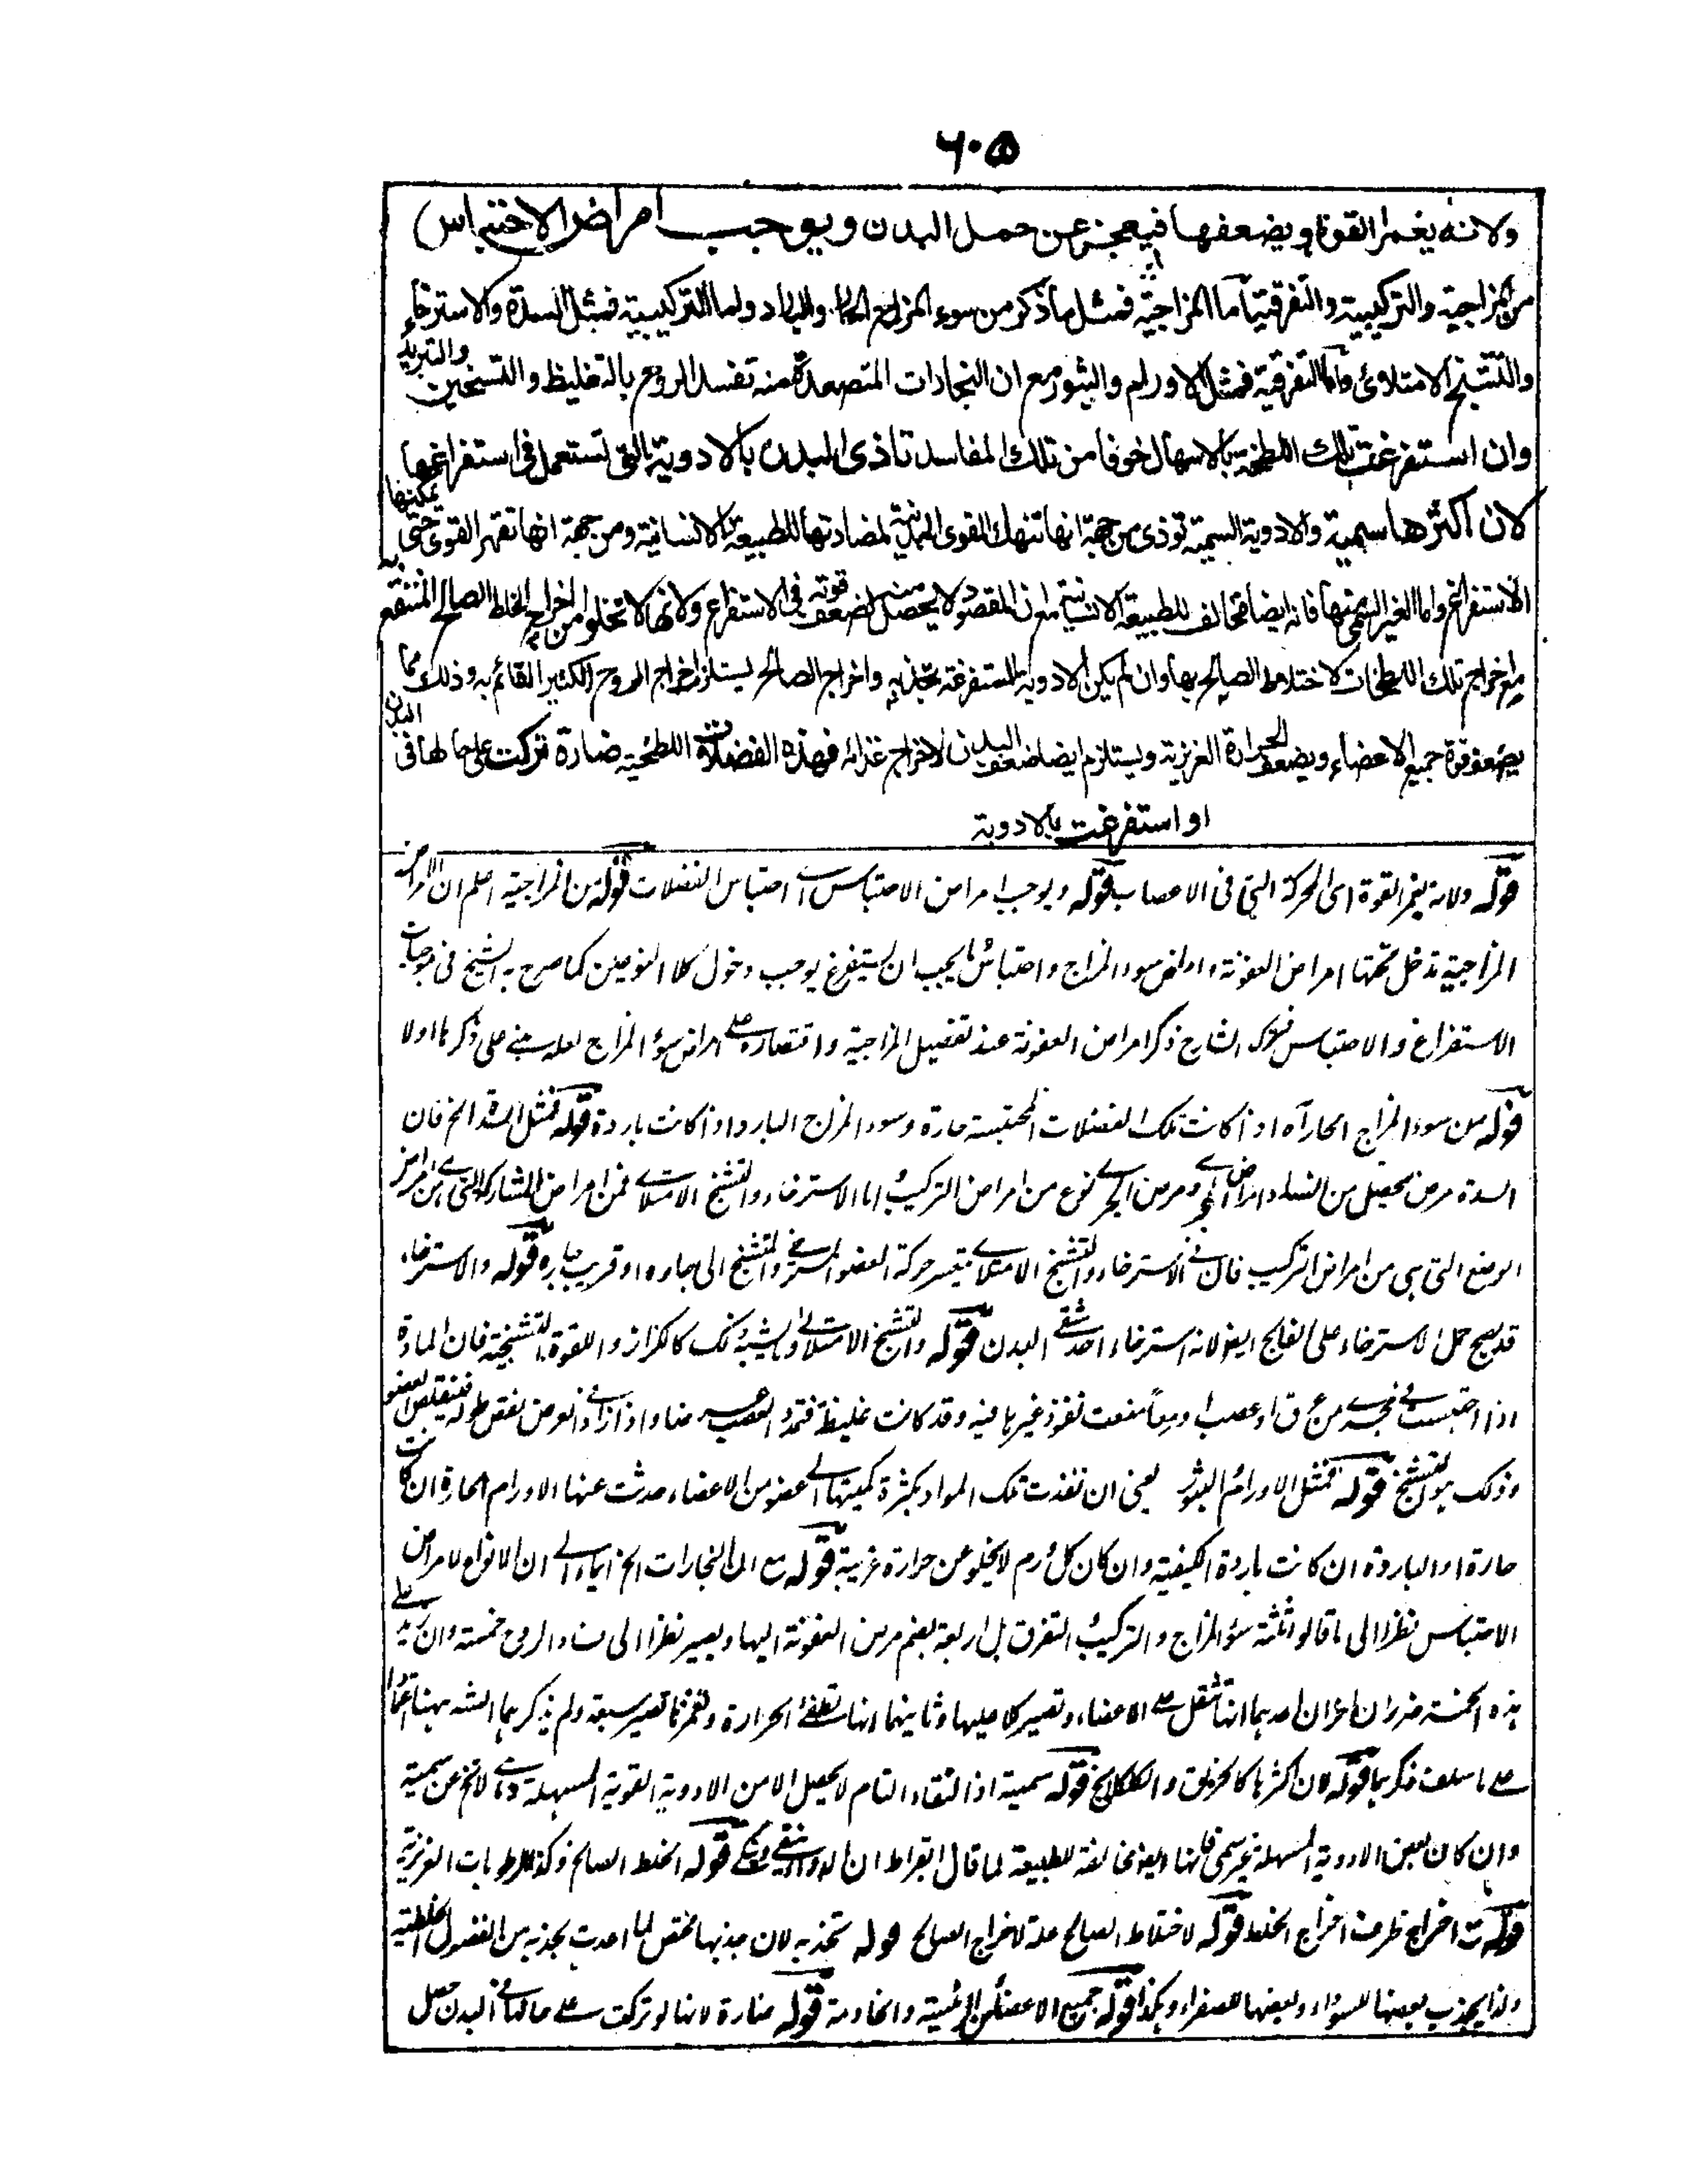 ۶۰۵
ولانه يغمر القوة ويضعفها فيعجز عن حمل البدن ويوجب امراض الاحتباس
من المزاجية والتركيبية والتفرقية اما المزاجية فمثل ما ذكر من سوء المزاج الحار والبارد واما التركيبية فمثل السدة والاسترخاء
والتشنج الامتلاوى واما التفرقية فمثل الاورام والبثور مع ان البخارات المتصعدة منه تفسد الروح بالتغليظ والتسخين والتبريد
وان استفرغت تلك اللطخية بالاسهال خوفا من تلك المفاسد تاذى البدن بالادوية التى تستعمل فى استفراغها
لان اكثرها سمية والادوية السمية توذى من جهة انها تنهك القوى البدنية لمضادتها للطبيعة الانسانية ومن جهة انها تقهر القوى حتى يمكنها
الاستفراغ واما الغير السمى منها فانه ايضا مخالف للطبيعة الانسانية مع ان المقصود لا يحصل منه لضعف قوته فى الاستفراغ ولانها لا تخلو من اخراج الخلط الصالح المنتفع به
مع اخراج تلك اللطخات لاختلاط الصالح بها وان لم يكن الادوية المستفرغة تجذبه واخراج الصالح يستلزم اخراج الروح الكثير القائم به وذلك مما
يضعف قوة جميع الاعضاء ويضعف الحرارة الغريزية ويستلزم ايضا ضعف البدن لاخراج غذائه فهذه الفضلات اللطخية ضارة تركت على حالها فى البدن
او استفرغت بالادوية
قوله ولانه يغمر القوة اى المحركة التى فى الاعصاب قوله ويوجب امراض الاحتباس اى احتباس الفضلات قوله من المزاجية اعلم ان الامراض
المزاجية تدخل تحتها امراض العفونة وامراض سوء المزاج واحتباس ما يجب ان يستفرغ يوجب دخول كلا النوعين كما صرح به الشيخ فى موجبات
الاستفراغ والاحتباس فترك الشارح ذكر امراض العفونة عند تفصيل المزاجية واقتصاره على امراض سوء المزاج لعله مبنى على ذكرها اولا
قوله من سوء المزاج الحار اه اذا كانت تلك الفضلات المحتبسة حارة وسوء المزاج البارد اذا كانت باردة قوله فمثل السدة الخ فان
السدة مرض يحصل من انسداد المجارى ومرض المجارى نوع من امراض التركيب اما الاسترخاء والتشنج الامتلائى فمن امراض المشاركة التى هى من امراض
الوضع التى هى من امراض التركيب فان فى الاسترخاء والتشنج الامتلائى يتعسر حركة العضو المسترخى والمتشنج الى جاره او قريب جاره قوله والاسترخاء
قد يصح حمل الاسترخاء على الفالج ايضا لانه استرخاء احد شقى البدن قوله والتشنج الامتلائى وما يشبه ذلك كالكزاز واللقوة التشنجية فان المادة
اذا احتبست فى مجرى من عرق او عصب او معا منعت نفوذ غيرها فيه وقد كانت غليظة فتمدد العصب عرضا واذا زاد فى العرض نقص طوله فيتقلص العضو
وذلك هو التشنج قوله فمثل الاورام والبثور يعنى ان نفذت تلك المواد بكثرة كميتها الى عضو من الاعضاء حدثت عنها الاورام الحارة ان كانت
حارة او الباردة ان كانت باردة الكيفية وان كان كل ورم لا يخلو عن حرارة غريبة قوله مع ان البخارات الخ ايماء الى ان الانواع لامراض
الاحتباس نظرا الى ما قالوا ثلثة سوء المزاج والتركيب والتفرق بل اربعة بضم مرض العفونة اليها ويصير نظرا الى فساد الروح خمسة وان يزيد على
هذه الخمسة ضرران اخران احدهما انها تثقل على الاعضاء وتصير كلا عليها وثانيهما انها تطفئ الحرارة وتغمرها تصير سبعة ولم يذكرهما الشارح ههنا اعتمادا
على ما سلف ذكرهما قوله لان اكثرها كالخربق والكلكلانج قوله سمية اذ النقاء التام لا يحصل الا من الادوية القوية المسهلة وهى لا تخ عن سمية
وان كان بعض الادوية المسهلة غير سمى فانها ايضا مخالفة للطبيعة لما قال ابقراط ان الدواء ينقى وينكى قوله الخلط الصالح وكذا الرطوبات الغريزية
قوله مع اخراج ظرف اخراج الخلط قوله لاختلاط الصالح علة لاخراج الصالح قوله تجذبه لان جذبها مختص لما اعدت بجذبه من الفضول الخلطية
ولذا يجذب بعضها للسوداء وبعضها للصفراء وهكذا قوله جميع الاعضاء من الرئيسية والخادمة قوله ضارة لانها لو تركت على حالها فى البدن حصل